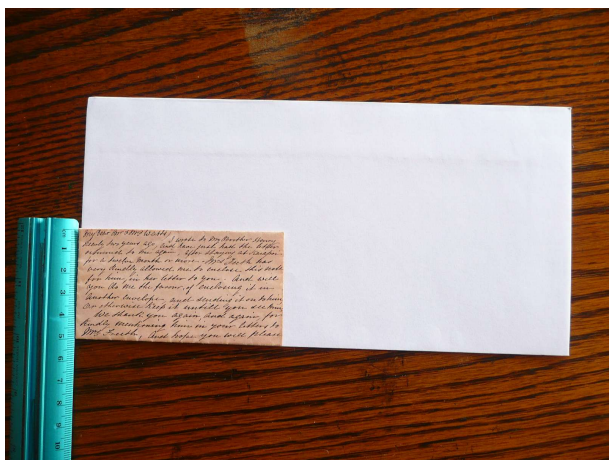 My Dear Mr & Mrs Watts,
I wrote to my Brother Henry
nearly two years ago, and have just had the letter
returned to me again after staying at
for a twelve month or more. Mrs has
very kindly allowed me to enclose this note
for him, in her letter to you. And will
you do me the favour of enclosing it in
another envelope, and sending it on to him
or otherwise keep it untill you see him
We thank you again, and again for
kindly mentioning him in your letters to
Mrs And hope you will please
1
2
3
4
5
6
7
8
9
10